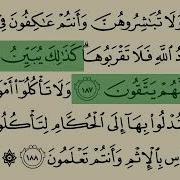 وَلَا تُبَـٰشِرُوهُنَّ وَأَنتُمْ عَـٰكِفُونَ فِى
دُ ٱللَّهِ فَلَا تَقْرَبُوهَا ۗ كَذَٰلِكَ يُبَيِّنُ
هُمْ يَتَّقُونَ ١٨٧ وَلَا تَأْكُلُوٓا۟ أَمْوَ
تُدْلُوا۟ بِهَآ إِلَى ٱلْحُكَّامِ لِتَأْكُلُو
سِ بِٱلْإِثْمِ وَأَنتُمْ تَعْلَمُونَ ١٨٨ ۞